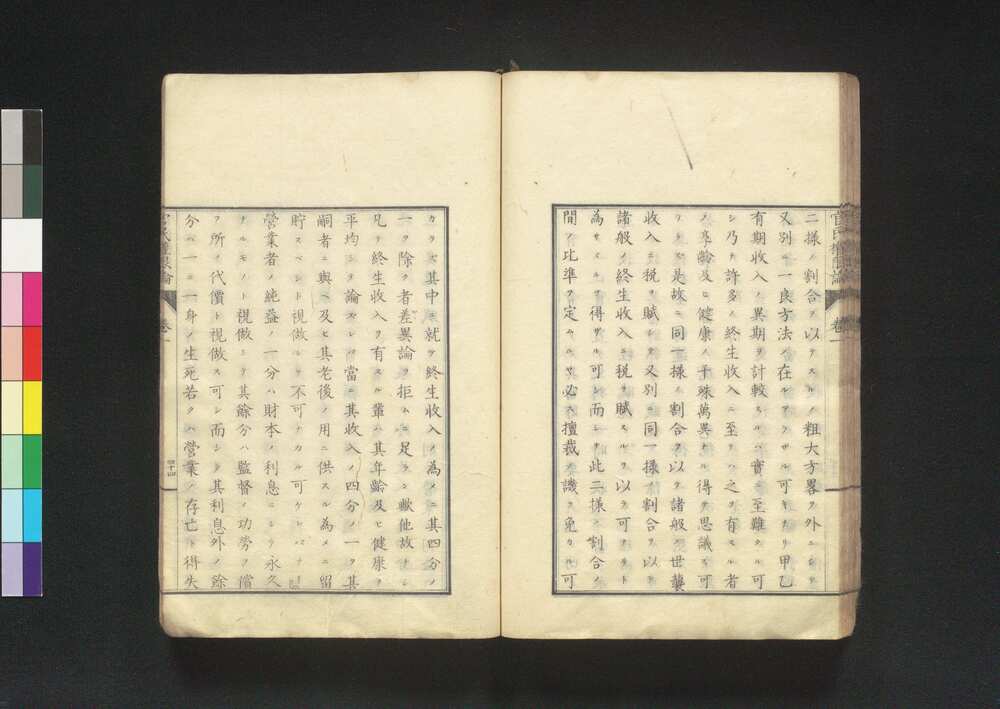 二様ノ割合ヲ以テスルノ粗大方畧ヲ外ニシテ
又別ニ一良方法ノ在ルアラザル可キナリ甲乙
有期收入ノ異期ヲ計較スルハ實ニ至難タル可
シ乃チ許多ノ終生收入ニ至テハ之ヲ有スル者
ノ享齡及ヒ健康ノ千殊萬異ナル得テ思議ス可
ラス是故ニ同一様ノ割合ヲ以テ諸般ノ世襲
收入ニ税ヲ賦シテ又別ニ同一様ノ割合ヲ以テ
諸般ノ終生收入ニ税ヲ賦スルヲ以テ可ナリト
為サヽルヲ得サル可シ而シテ此二様ノ割合ノ
間ノ比準ヲ定ムルヤ必ス擅裁ノ譏ヲ免カル可
カラズ其中ニ就テ終生收入ノ為メニ其四分ノ
一ヲ除ク者差異論ヲ拒ムニ足ラン歟他故ナシ
凡ソ終生收入ヲ有スル輩ハ其年齡及ヒ健康ヲ
平均シテ論ズレバ當ニ其收入ノ四分ノ一ヲ其
嗣者ニ與ヘ及ヒ其老後ノ用ニ供スル為メニ留
貯スベシト視做シテ不可ナカル可ケレバナリ
營業者ノ純益ノ一分ハ財本ノ利息ニシテ永久
ナルモノト視做シテ其餘分ハ監督ノ功勞ヲ償
フ所ノ代價ト視做ス可シ而シテ其利息外ノ餘
分ハ一ニ一身ノ生死若クハ營業ノ存亡ト得失
卷一
四十四